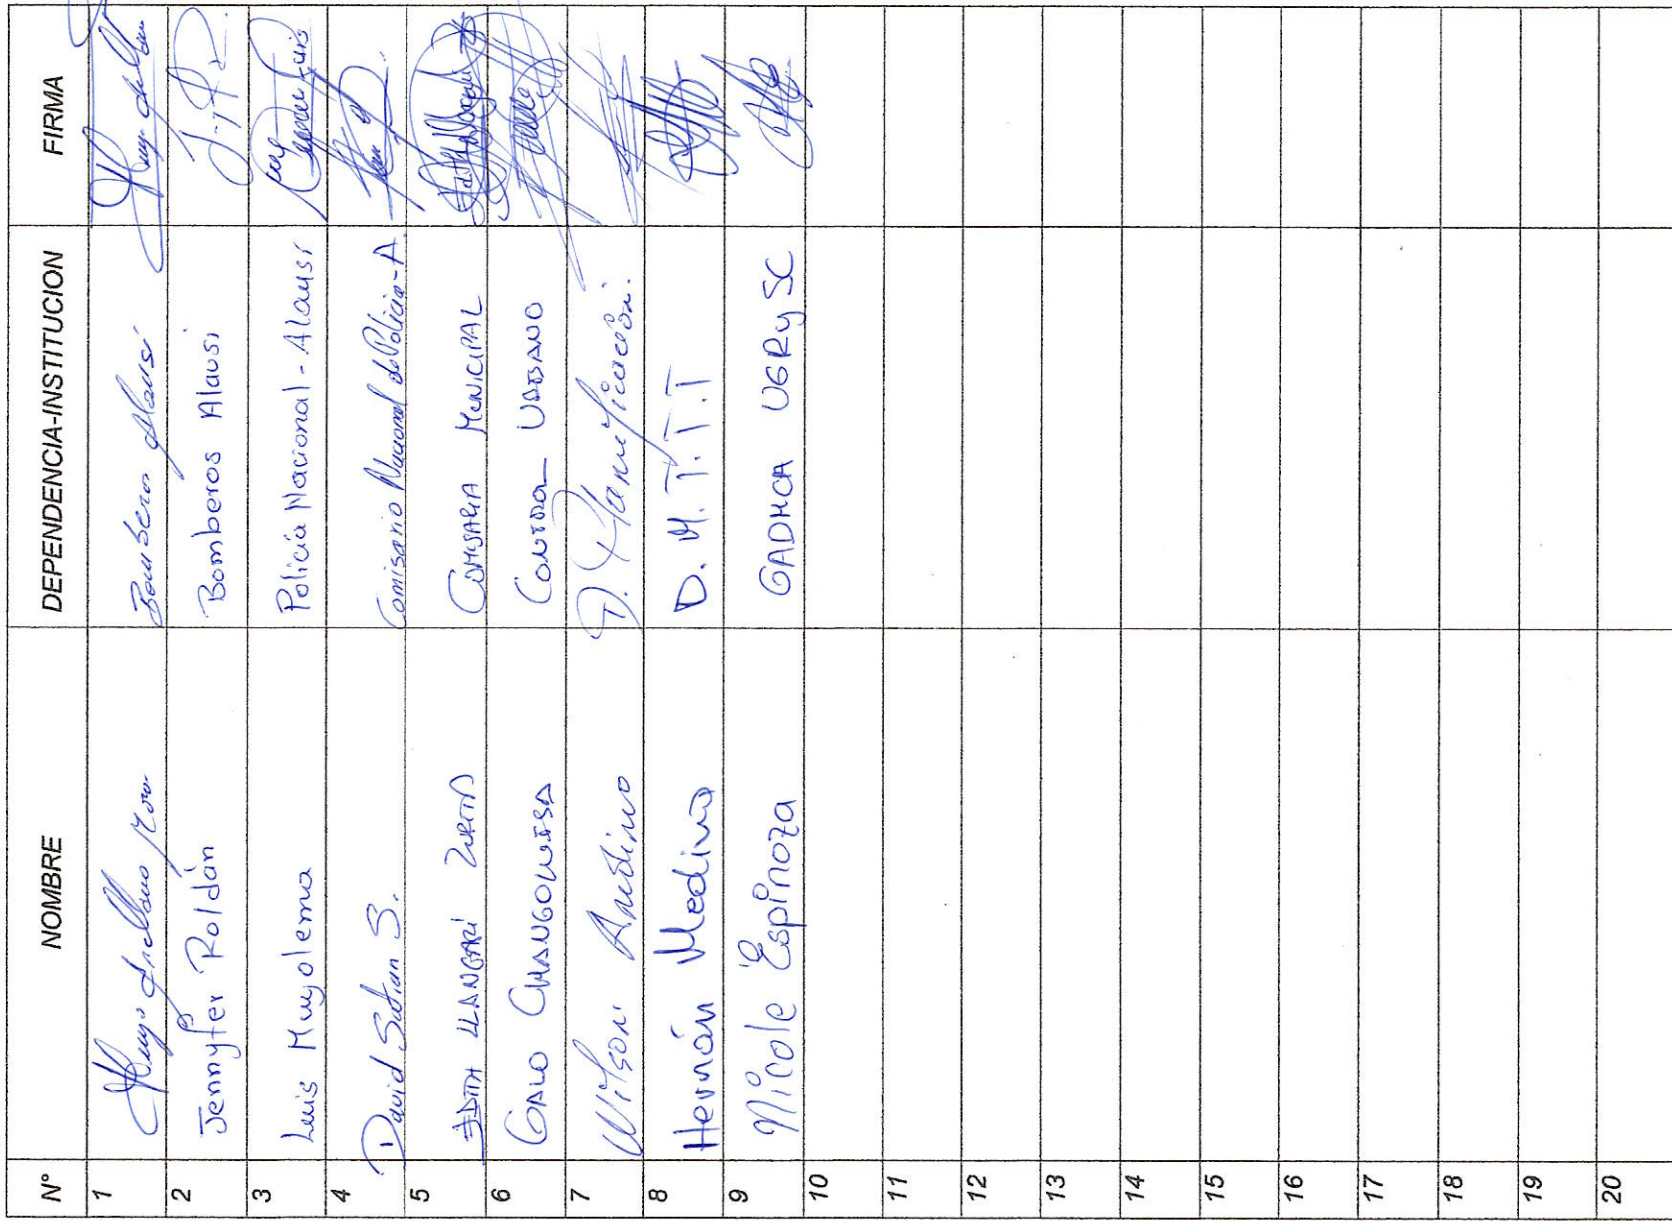 N° NOMBRE DEPENDENCIA-INSTITUCION FIRMA
1 Hugo Arellano Bomberos Alausí
2 Jennyfer Roldán Bomberos Alausi
3 Luis Muyolema Policía Nacional - Alausí
4 David S. Comisario Nacional de Policia - A
5 EDITH LLANGARÍ COMISARIA MUNICIPAL
6 GALO CHANGOLUISA CONTROL URBANO
7 Wilson Andino D. Planificación.
8 Hernán Medina D. M. T. T. T
9 Nicole Espinoza GADMCA UGRySC
10
11
12
13
14
15
16
17
18
19
20